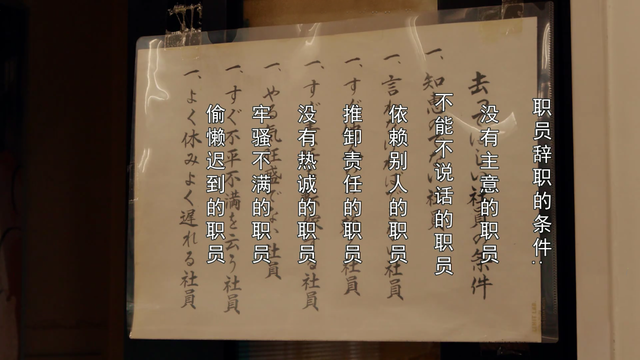 职员辞职的条件:
没有主意的职员
不能不说话的职员
依赖别人的职员
推卸责任的职员
没有热诚的职员
牢骚不满的职员
偷懒迟到的职员
去ってほしい社員の条件
一、知恵のでない社員
一、言わ 社員
一、すぐ 社員
一、すぐ する社員
一、やる気旺盛でない社員
一、すぐ不平不満を云う社員
一、よく休みよく遅れる社員